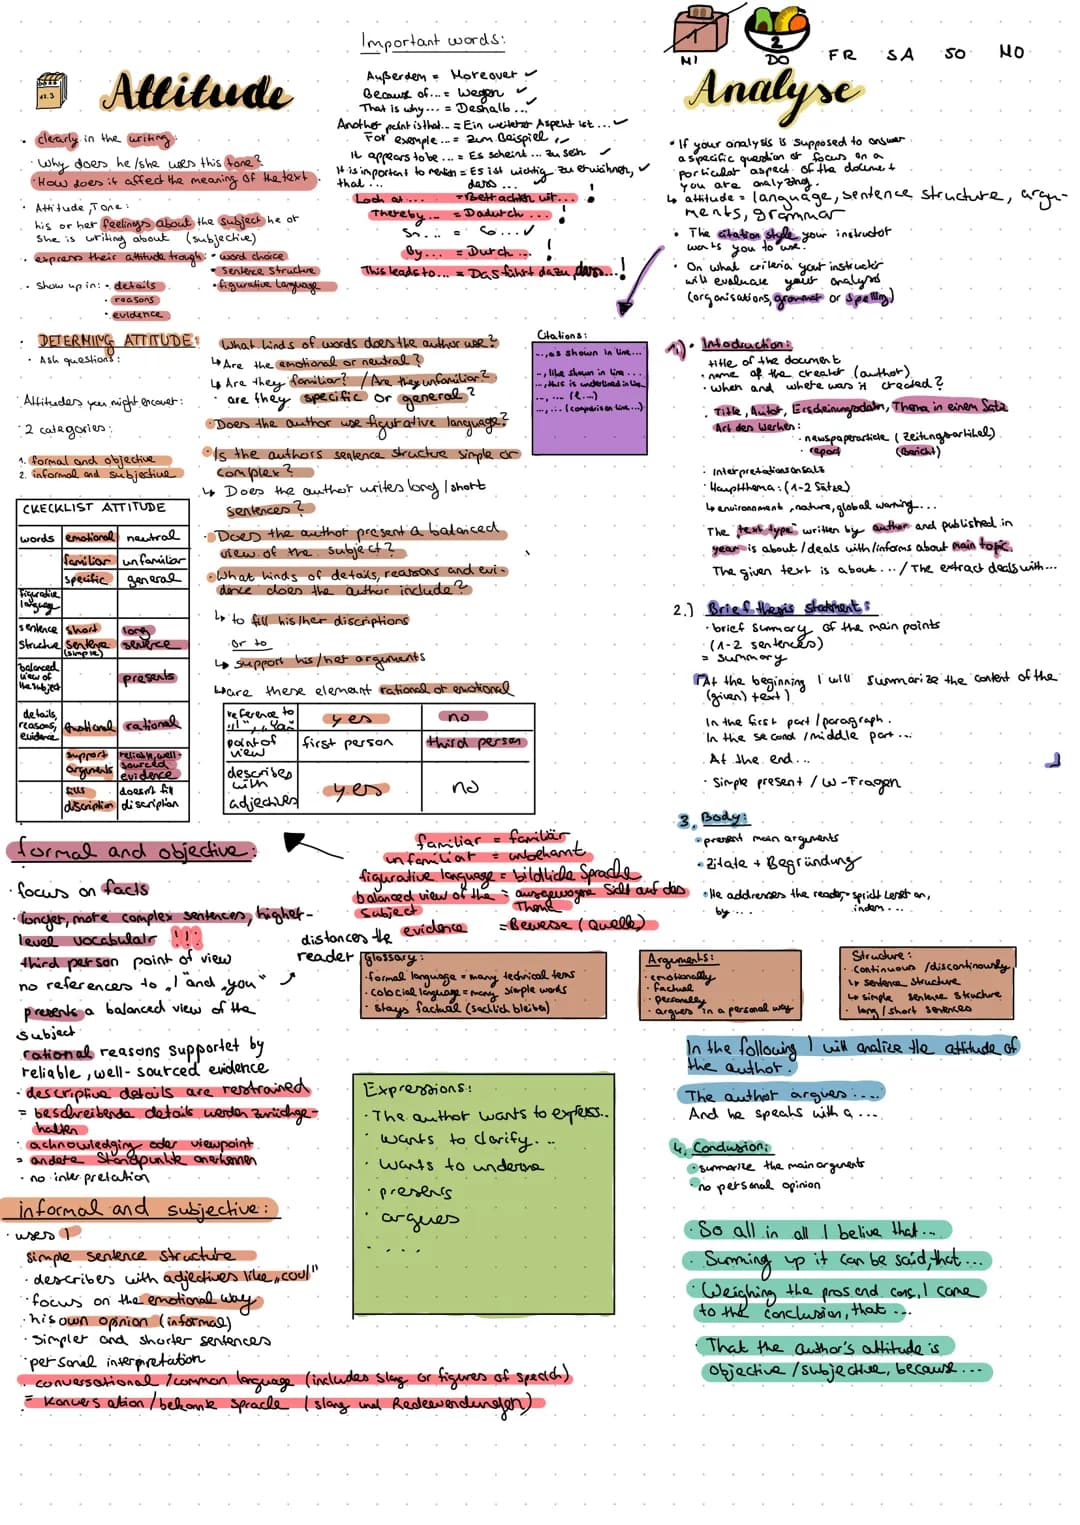 Important words:
1
2
MI DO FR SA SO MO
Attitude
Analyse
Außerdem = Moreover
Because of... = Wegen
That is why... = Deshalb...
Another point is that... = Ein weiterer Aspekt ist...
For exemple... = Zum Beispiel
It appears to be ... = Es scheint ... zu sein
It is important to mention = Es ist wichtig zu erwähnen,
that ... dass ...
Look at ... = Betrachten wir...
Thereby... = Dadurch ... !
So... = So...
By... = Durch ... !
This leads to... = Das führt dazu, dass...!
· clearly in the writing:
· Why does he/she uses this tone?
· How does it affect the meaning of the text.
· Attitude, Tone:
his or her feelings about the subject he or
she is writing about (subjective)
· express their attitude trough: · word choice
· sentence structure
· figurative language
· Show up in: · details
· reasons
· evidence
· If your analysis is supposed to answer
a specific question or focus on a
particular aspect of the document
you are analyzing.
↳ attitude = language, sentence structure, argu-
ments, grammar
· The citation style your instructor
wants you to use.
· On what criteria your instructor
will evaluate your analysis
(organisations, grammar or spelling)
· DETERMING ATTITUDE:
· Ask questions:
· Attitudes you might encouter:
· 2 categories:
1. formal and objective
2. informal and subjective
What kinds of words does the author use?
↳ Are the emotional or neutral?
↳ Are they familiar? / Are they unfamiliar?
· are they specific or general?
· Does the author use figurative language?
· Is the authors sentence structure simple or
complex?
↳ Does the author writes long/short
sentences?
· Does the author present a balanced
view of the subject?
· What kinds of details, reasons and evi-
dence does the author include?
↳ to fill his/her discriptions
or to
↳ support his/her arguments
↳ are these element rational or emotional
Citations:
..., as shown in line...
..., like shown in line...
..., this is underlined in line...
..., ... (l....)
..., ... (comparison line...)
CHECKLIST ATTITUDE
words emotional neutral
familiar unfamiliar
specific general
figurative language
sentence structure short sentence (simple) long sentence
balanced view of the subject presents
details, reasons, evidence emotional rational
support arguments reliable, well-sourced evidence
fills discription doesn't fill discription
reference to "I", "You" yes no
point of view first person third person
describes with adjectives yes no
1.) · Intoduction:
title of the document
· name of the creater (author)
· when and where was it created?
· Title, Autor, Erscheinungsdatum, Thema in einem Satz
Art des Werkes:
· newspaperarticle (Zeitungsartikel)
· report (Bericht)
· Interpretationsansatz
· Hauptthema: (1-2 Sätze)
↳ environnment, nature, global warming...
The "text type" written by author and published in
year is about / deals with/informs about main topic.
The given text is about... / The extract deals with...
2.) Brief thesis statement:
· brief summary of the main points
(1-2 sentences)
= summary
At the beginning I will summarize the content of the
(given) text)
In the first part/paragraph.
In the second/middle part...
At the end...
· Simple present / W-Fragen
3. Body:
· present main arguments
· Zitate + Begründung
· He addresses the reader = spricht Leser an,
by ... indem ...
formal and objective:
· focus on facts
· longer, more complex sentences, higher-
level vocabulair !!!
third person point of view
no references to "I" and "you"
presents a balanced view of the
subject
rational reasons supportet by
reliable, well-sourced evidence
· descriptive details are restrained
= beschreibende details werden zurückge-
halten
· acknowledging oder viewpoint
= andere Standpunkte anerkennen
· no interpretation
distances the
reader
familiar = familiär
unfamiliar = unbekannt
figurative language = bildliche Sprache
balanced view of the = ausgewogene Sicht auf das
subject Thema
evidence = Beweise (Quelle)
Glossary:
· formal language = many technical tems
· colocial language = many simple words
· stays factual (sachlich bleiben)
Arguments:
· emotionally
· factual
· personally
· argues in a personal way
Structure:
· continuous / discontinously
↳ sentence structure
↳ simple sentence structure
· long / short sentences
Expressions:
· The author wants to express..
· wants to clarify...
· wants to underline
· presents
· argues
· ....
In the following I will analize the attitude of
the author.
The author argues ....
And he speaks with a ...
4. Conclusion:
· summarize the main arguments
· no personal opinion
· So all in all I belive that...
· Summing up it can be said, that...
· Weighing the pros and cons, I come
to the conclusion, that ...
· That the author's attitude is
objective / subjective, because...
informal and subjective:
· uses I
simple sentence structure
· describes with adjectives like "cool"
· focus on the emotional way
· his own opinion (informal)
· Simpler and shorter sentences
· personal interpretation
· conversational / common language (includes slag or figures of speech)
= Konversation / bekannte Sprache (slang und Redewendungen)